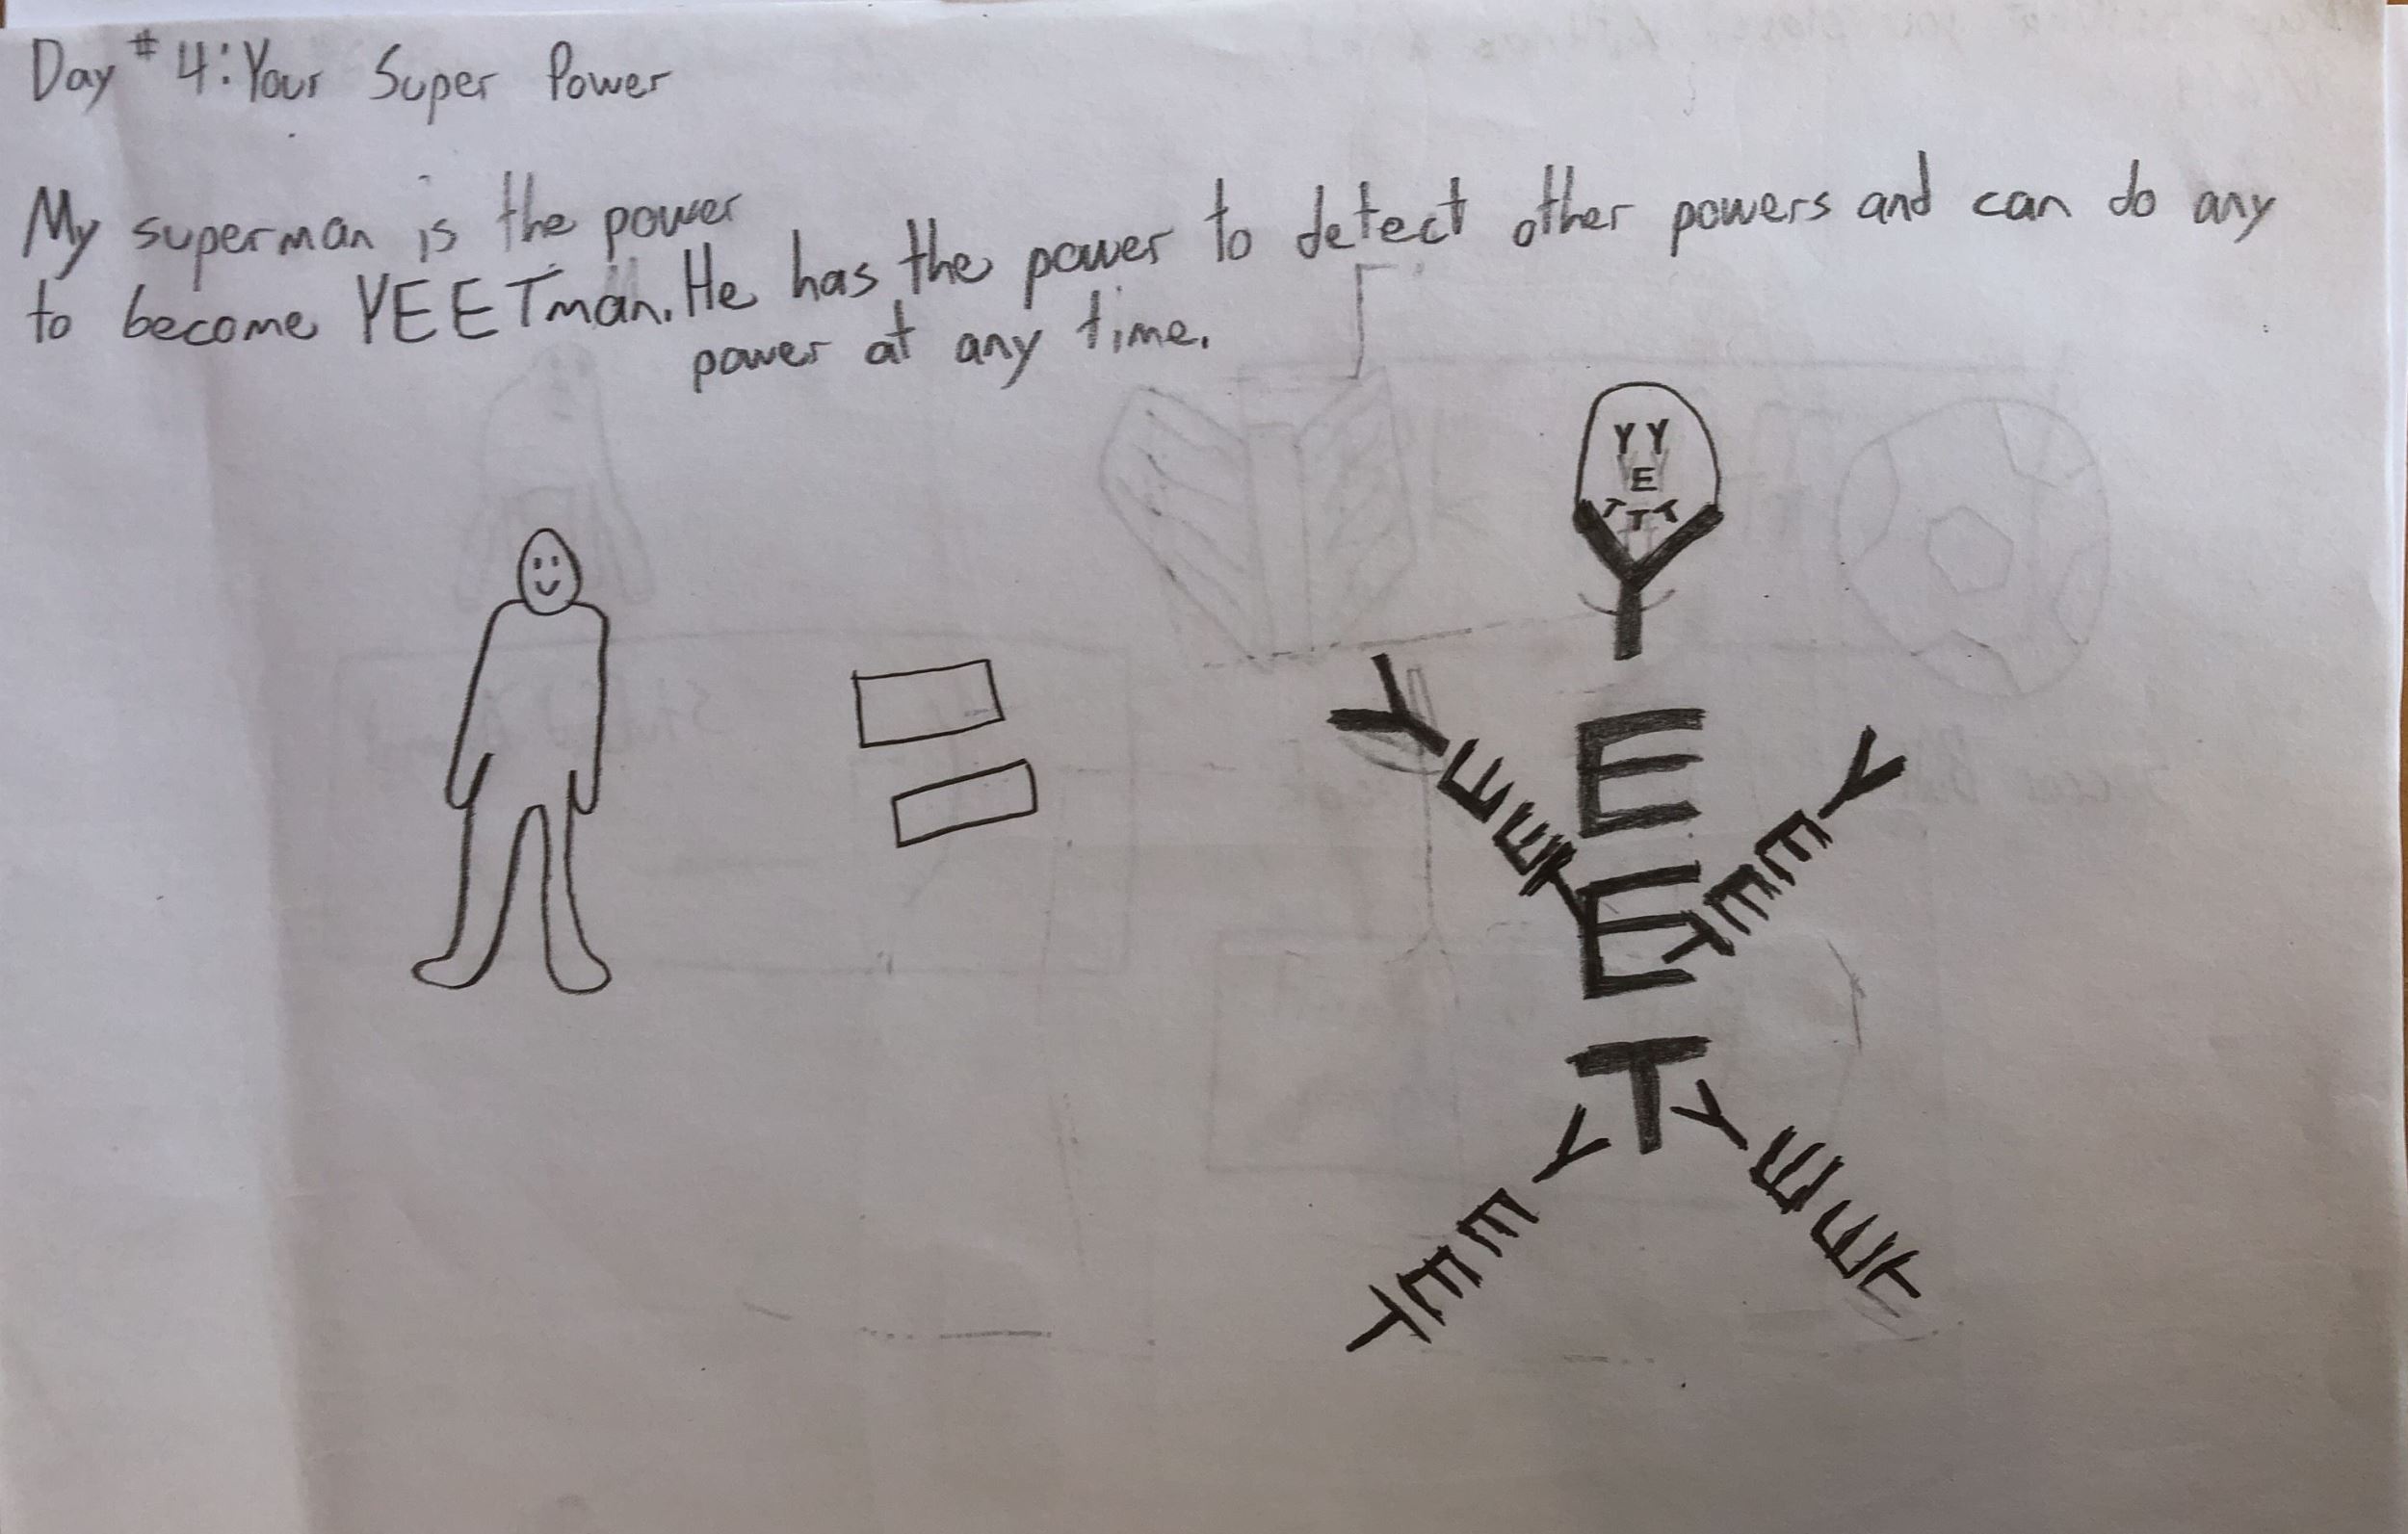 Day #4: Your Super Power
My superman is the power
to become YEETman. He has the power to detect other powers and can do any
power at any time.
Y Y
E
T T T
YEET
YEET
YEET
YEET
YEET